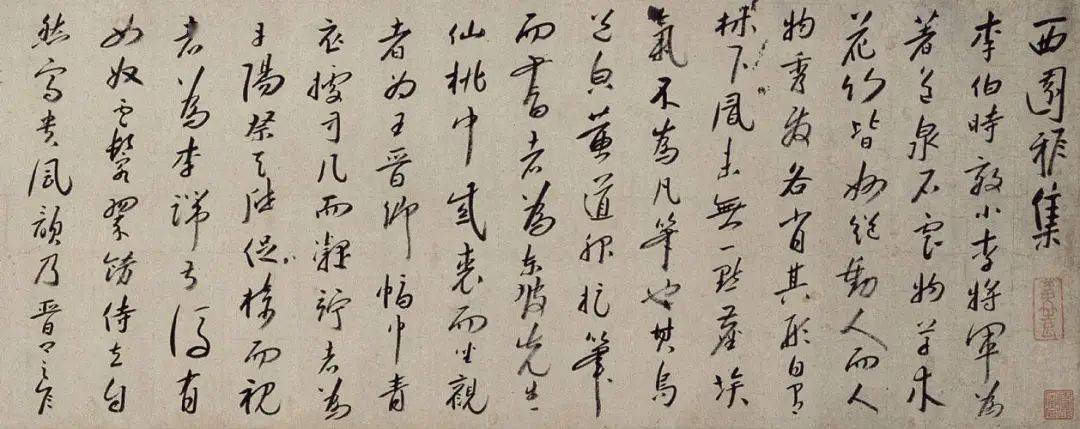 西園雅集
李伯時效小李將軍為
著色泉石雲物草木
花竹皆妙絕動人而人
物秀發各肖其形自有
林下風味無一點塵埃
氣不為凡筆也其烏
黃道服捉筆
而書者為東坡先生
仙桃巾紫裘而坐觀
者為王晉卿幅巾青
衣據方几而凝竚者為
丹陽蔡天啟捉椅而視
者為李端叔後有
女奴雲鬟翠飾侍立自
然富貴風韻乃晉